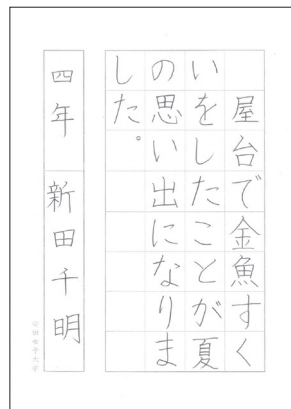 屋台で金魚すく
いをしたことが夏
の思い出になりま
した。
四年 新田千明